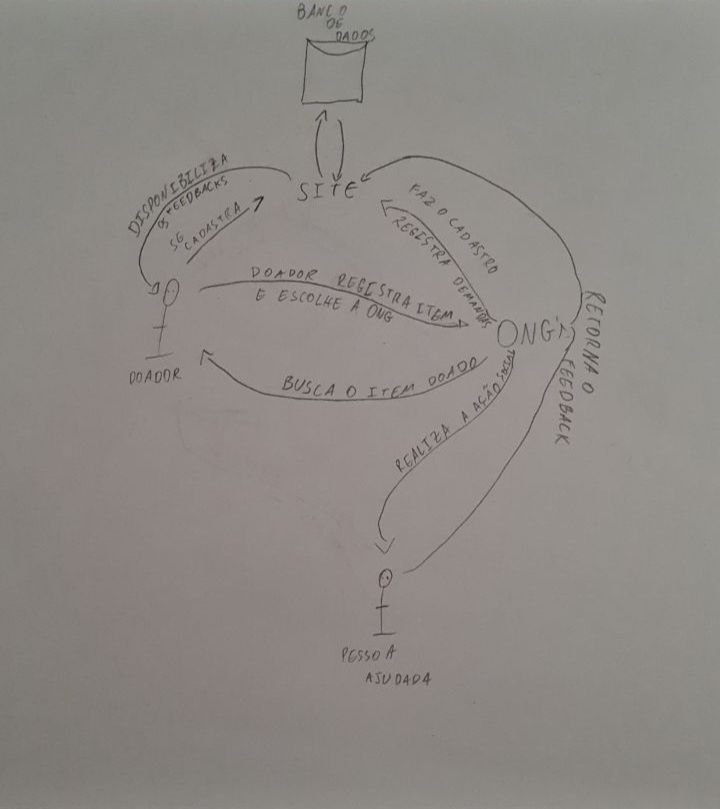 BANCO
DE
DADOS
DISPONIBILIZA
OS FEEDBACKS
SE
CADASTRA
SITE
FAZ O CADASTRO
REGISTRA DEMANDAS
DOADOR REGISTRA ITEM
E ESCOLHE A ONG
ONG
RETORNA O
FEEDBACK
DOADOR
BUSCA O ITEM DOADO
REALIZA A AÇÃO SOCIAL
PESSOA
AJUDADA